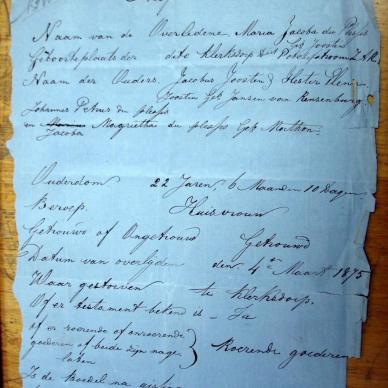 Naam van de Overledene Maria Jacoba du Plessis
Geb Joosten
Geboorteplaats der dito Klerksdorp dist Potchefstroom Z.A.R.
Naam der Ouders. Jacobus Joosten & Hester
Joosten Geb Jansen van Rensburg
Johannes Petrus du plessis
en Magrietha du plessis Geb
Jacoba
Ouderdom 22 Jaren, 6 Maanden 10 Dagen
Beroep. Huisvrouw
Getrouwd of Ongetrouwd Getrouwd
Datum van overlyden den 4de Maart 1875
Waar gestorven te Klerksdorp.
Of er testament bekend is - Ja
of er roerende of onroerende
goederen of beide zijn nage-
laten
Roerende goederen
Is de Boedel na